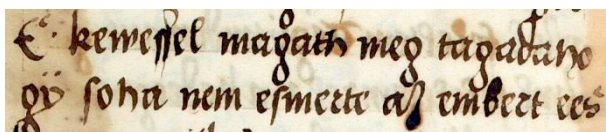 E· kewessel magath meg tagadaho
gÿ soha nem esmerte aȥ embert ees